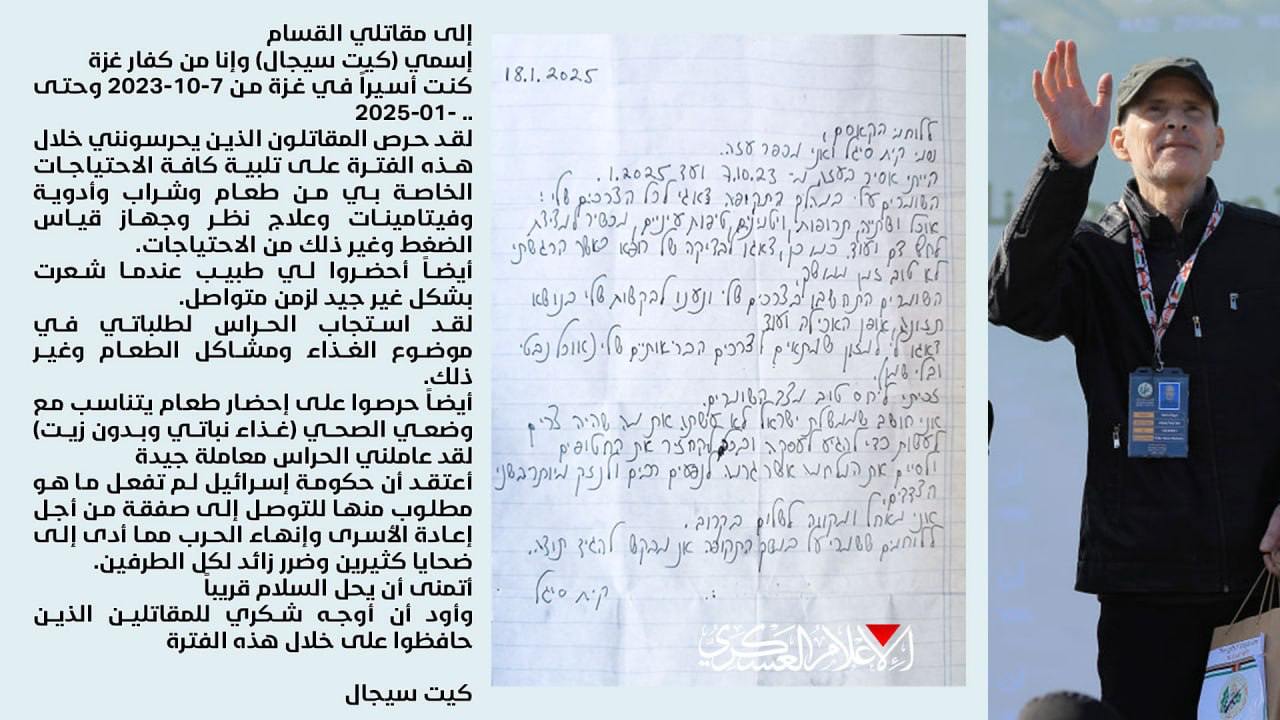 إلى مقاتلي القسام
إسمي (كيت سيجال) وإنا من كفار غزة
كنت أسيراً في غزة من 7-10-2023 وحتى
.. -01-2025
لقد حرص المقاتلون الذين يحرسونني خلال
هذه الفترة على تلبية كافة الاحتياجات
الخاصة بي من طعام وشراب وأدوية
وفيتامينات وعلاج نظر وجهاز قياس
الضغط وغير ذلك من الاحتياجات.
أيضاً أحضروا لي طبيب عندما شعرت
بشكل غير جيد لزمن متواصل.
لقد استجاب الحراس لطلباتي في
موضوع الغذاء ومشاكل الطعام وغير
ذلك.
أيضاً حرصوا على إحضار طعام يتناسب مع
وضعي الصحي (غذاء نباتي وبدون زيت)
لقد عاملني الحراس معاملة جيدة
أعتقد أن حكومة إسرائيل لم تفعل ما هو
مطلوب منها للتوصل إلى صفقة من أجل
إعادة الأسرى وإنهاء الحرب مما أدى إلى
ضحايا كثيرين وضرر زائد لكل الطرفين.
أتمنى أن يحل السلام قريباً
وأود أن أوجه شكري للمقاتلين الذين
حافظوا على خلال هذه الفترة
كيت سيجال
18.1.2025
ללוחמי הקאסם,
שמי קית סיגל ואני מכפר עזה.
הייתי אסיר בעזה מ: 7.10.23 ועד 1.2025.
השומרים עלי במהלך התקופה דאגו לכל הצרכים שלי:
אוכל ושתייה, תרופות, ויטמינים, טיפות עיניים, מכשיר למדידת
לחץ דם ועוד. כמו כן, דאגו לבדיקה של רופא כאשר הרגשתי
לא טוב זמן ממושך.
השומרים התחשבו בצרכים שלי ונענו לבקשות שלי בנושא
תזונה, אופן האכילה ועוד.
דאגו לי למזון שמתאים לצרכים הבריאותיים שלי (אוכל נבטי
ובלי שמן).
זכיתי ליחס טוב מצד השומרים.
אני חושב שממשלת ישראל לא עשתה את מה שהיה צריך
לעשות כדי להגיע לעסקה ובכך להחזיר את החטופים
ולסיים את המלחמה אשר גרמה לנפגעים רבים ולנזק מיותר בשני
הצדדים.
אני מאחל ומקווה לשלום בקרוב.
ללוחמים ששמרו עלי במשך התקופה אני מבקש להגיד תודה.
קית סיגל
الإعلام العسكري